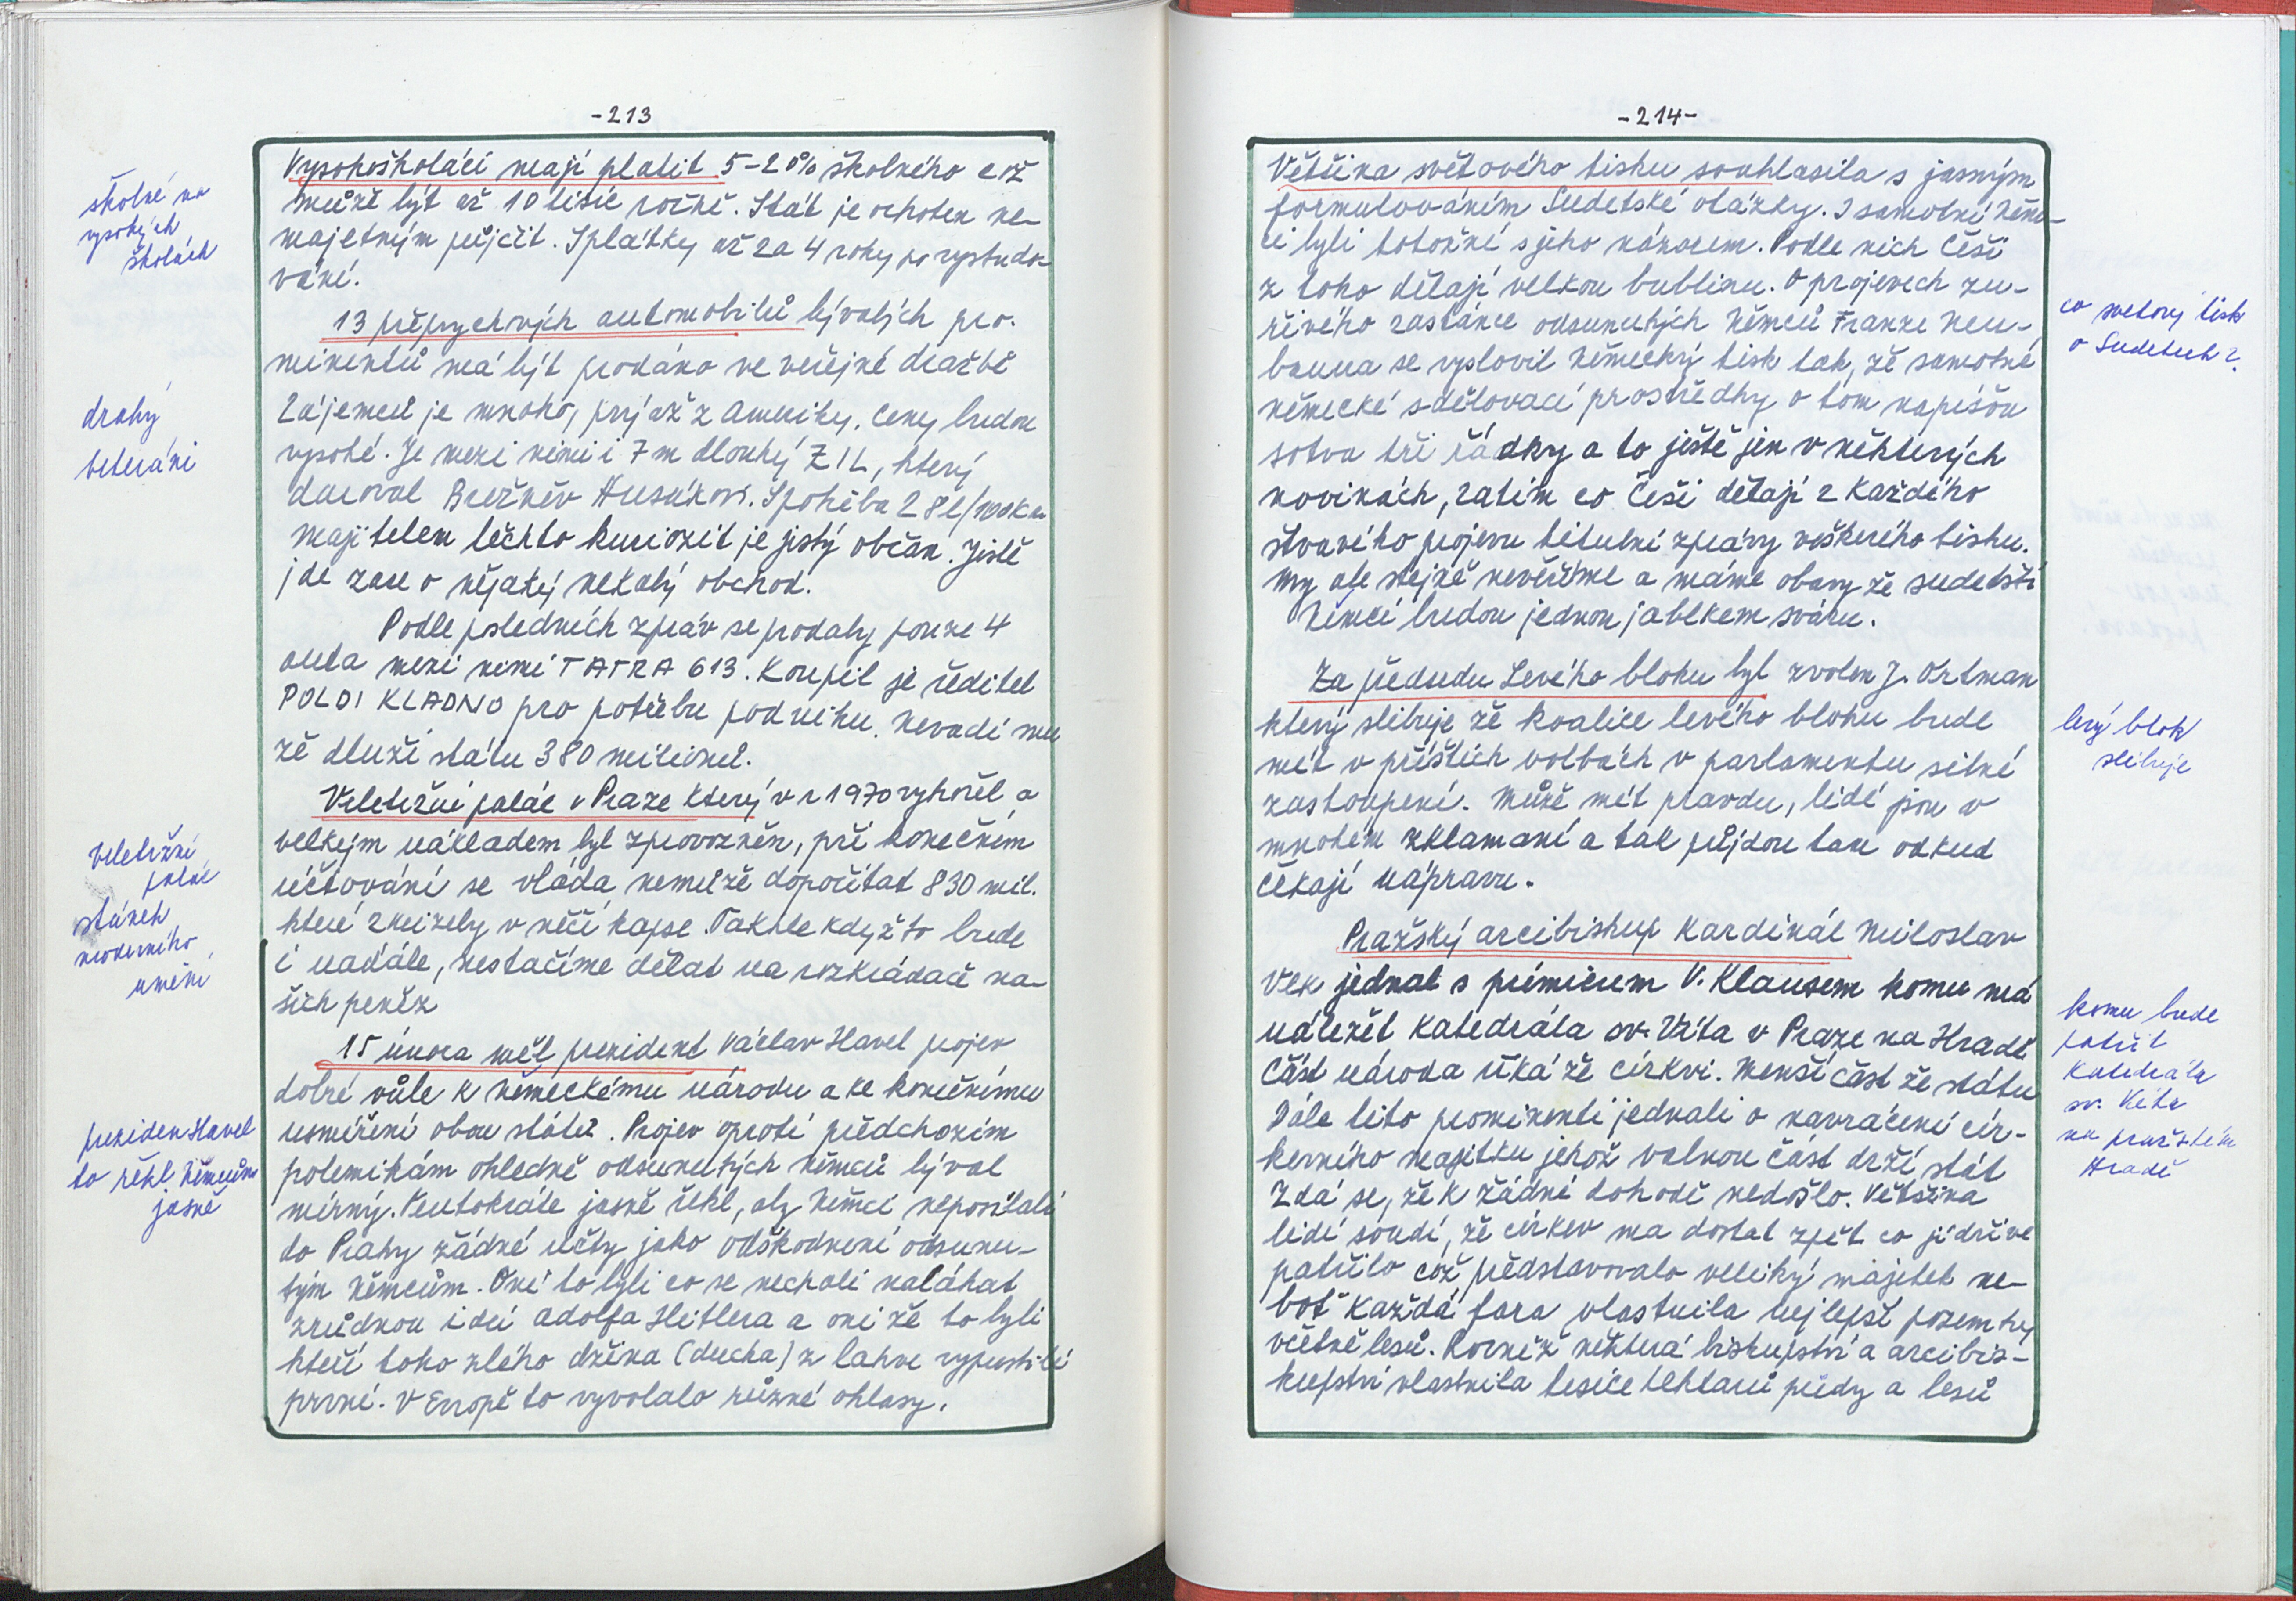 -213
školné na
vysokých
školách
Vysokoškoláci mají platit 5-20% školného což
může být až 10 tisíc ročně. Stát je ochoten ne-
majetným půjčit. Splátky až za 4 roky po vystudo-
vání.
13 přepychových automobilů bývalých pro-
minentů má být prodáno ve veřejné dražbě
drahý
veteráni
Zájemců je mnoho, prý až z Ameriky. Ceny budou
vysoké. Je mezi nimi i 7 m dlouhý ZIL, který
daroval Brežněv Husákovi. Spotřeba 28 l/100 km
Majitelem těchto kuriozit je jistý občan. Jistě
jde zase o nějaký nekalý obchod.
Podle posledních zpráv se prodaly pouze 4
auta mezi nimi TATRA 613. Koupil je ředitel
POLDI KLADNO pro potřebu podniku. Nevadí mu
že dluží státu 380 milionů.
Veletržní palác v Praze který v r 1970 vyhořel a
veletržní
palác
stánek
moderního
umění
velkým nákladem byl zprovozněn, při konečném
účtování se vláda nemůže dopočítat 830 mil.
které zmizely v něčí kapse. Takhle když to bude
i nadále, nestačíme dělat na rozkrádače na-
šich peněz
15 února měl prezident Václav Havel projev
dobré vůle k Německému národu a ke konečnému
preziden Havel
to řekl Němcům
jasně
usmíření obou států. Projev oproti předchozím
polemikám ohledně odsunutých Němců býval
mírný. Tentokráte jasně řekl, aby Němci neposílali
do Prahy žádné účty jako odškodnění odsunu-
tým Němcům. Oni to byli co se nechali nalákat
zrůdnou ideí Adolfa Hitlera a oni že to byli
kteří toho zlého džina (ducha) z lahve vypustili
první. V Evropě to vyvolalo různé ohlasy.
-214-
Většina světového tisku souhlasila s jasným
formulováním Sudetské otázky. I samotní Něm-
ci byli totožní s jeho názorem. Podle nich Češi
z toho dělají velkou bublinu. O projevech zu-
řivého zastánce odsunutých Němců Franze Neu-
co svetový tisk
o Sudetech?
bauna se vyslovil Německý tisk tak, že samotné
německé sdělovací prostředky o tom napíšou
sotva tři řádky a to ještě jen v některých
novinách, zatím co Češi dělají z každého
štvavého projevu titulní zprávy veškerého tisku.
My ale stejně nevěříme a máme obavy že sudetští
Němci budou jednou jablkem sváru.
Za předsedu Levého bloku byl zvolen J. Ortman
levý blok
slibuje
který slibuje že koalice levého bloku bude
mít v příštích volbách v parlamentu silné
zastoupení. Může mít pravdu, lidé jsou v
mnohém zklamaní a tak půjdou tam odkud
čekají nápravu.
Pražský arcibiskup Kardinál Miloslav
Vlk jednal s premiérem V. Klausem komu má
komu bude
patřit
Katedrála
sv. Víta
na pražském
Hradě
náležet Katedrála sv. Víta v Praze na Hradě
Část národa říká že církvi. Menší část že státu
Dále tito prominenti jednali o navrácení cír-
kevního majetku jehož valnou část drží stát
Zdá se, že k žádné dohodě nedošlo. Většina
lidí soudí, že církev ma dostat zpět co jí dříve
patřilo což představovalo veliký majetek ne-
boť každá fara vlastnila nejlepší pozemky
včetně lesů. Rovněž některá biskupství a arcibis-
kupství vlastnila tisíce hektarů půdy a lesů